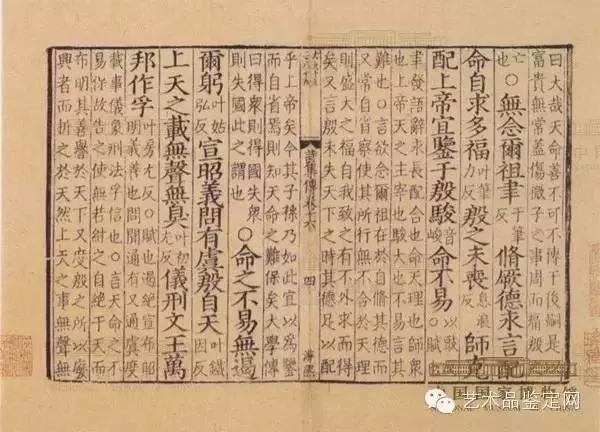 曰大哉天命善不可不傳于後嗣是
富貴無常蓋傷微子之事周而痛殷
亡也○無念爾祖聿于筆反脩厥德永言配
命自求多福叶筆力反殷之未喪息浪反師克
配上帝宜鑒于殷駿音峻命不易以䜴反○賦也
聿發語辭永長配合也命天理也師衆
也上帝天之主宰也駿大也不易言其
難也○言欲念爾祖在於自脩其德而
又常自省察使其所行無不合於天理
則盛大之福自我致之有不外求而得
矣又言殷未失天下之時其德足以配
詩集傳卷十六
四
乎上帝矣今其子孫乃如此宜以為鑒
而自省焉則知天命之難保矣大學傳
曰得衆則得國失衆則失國此之謂也○命之不易無遏
爾躬叶姑弘反宣昭義問有虞殷自天叶鐵因反
上天之載無聲無臭叶初尤反儀刑文王萬
邦作孚叶房尤反○賦也遏絕宣布昭明義善也問聞通有又通虞度
載事儀象刑法孚信也○言天命之不
易保故告之使無若紂之自絕于天而
布明其善譽於天下又度殷之所以廢
興者而折之於天然上天之事無聲無
中国国家博物館
艺术品鉴定网